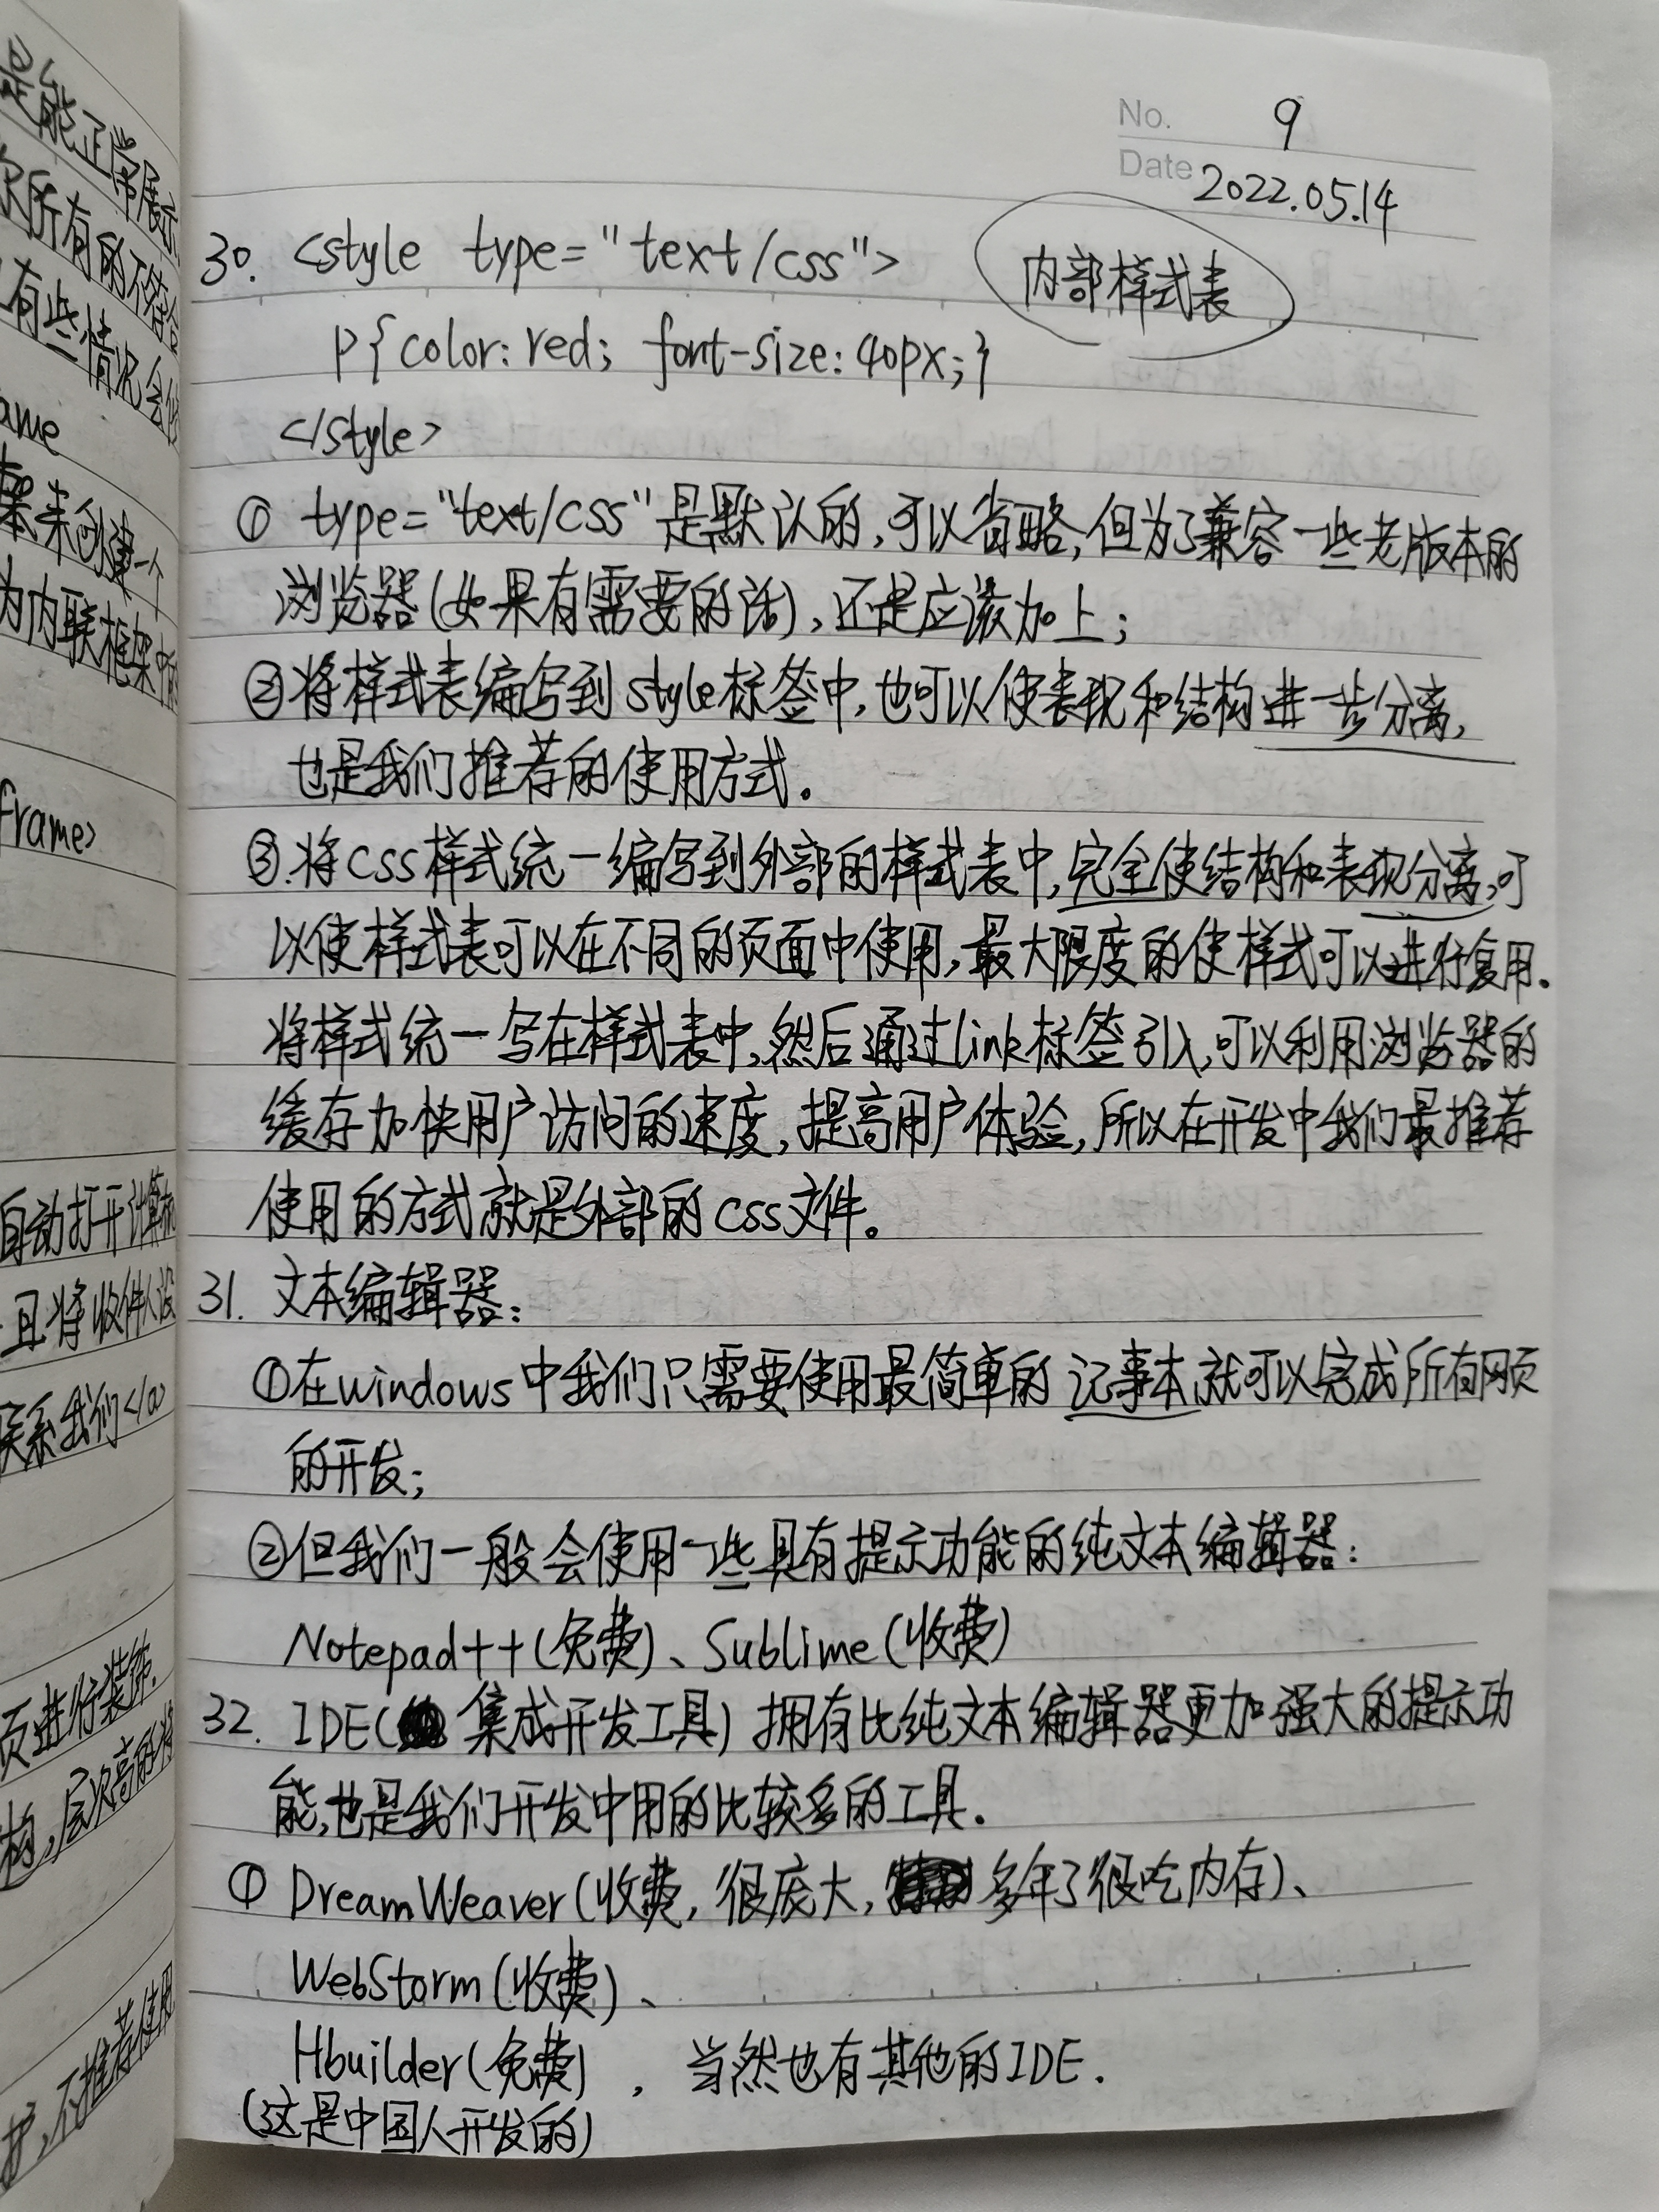 No. 9
Date 2022.05.14
30. <style type="text/css">
内部样式表
p{color:red; font-size:40px;}
</style>
① type="text/css"是默认的,可以省略,但为了兼容一些老版本的
浏览器(如果有需要的话),还是应该加上;
②将样式表编写到style标签中,也可以使表现和结构进一步分离,
也是我们推荐的使用方式.
③.将css样式统一编写到外部的样式表中,完全使结构和表现分离,可
以使样式表可以在不同的页面中使用,最大限度的使样式可以进行复用.
将样式统一写在样式表中,然后通过link标签引入,可以利用浏览器的
缓存加快用户访问的速度,提高用户体验,所以在开发中我们最推荐
使用的方式就是外部的css文件。
31. 文本编辑器:
①在windows中我们只需要使用最简单的记事本就可以完成所有网页
的开发;
②但我们一般会使用一些具有提示功能的纯文本编辑器:
Notepad++(免费)、Sublime(收费)
32. IDE(集成开发工具)拥有比纯文本编辑器更加强大的提示功
能,也是我们开发中用的比较多的工具.
① DreamWeaver(收费,很庞大,多年了很吃内存)、
WebStorm(收费)、
Hbuilder(免费),当然也有其他的IDE.
(这是中国人开发的)
是能正常展示
所有的不符合
有些情况会
ame
来创建一个
为内联框架中的
frame>
自动打开计算机
且将收件人设
联系我们</a>
页进行装饰.
构,层次高的将
护,不推荐使用